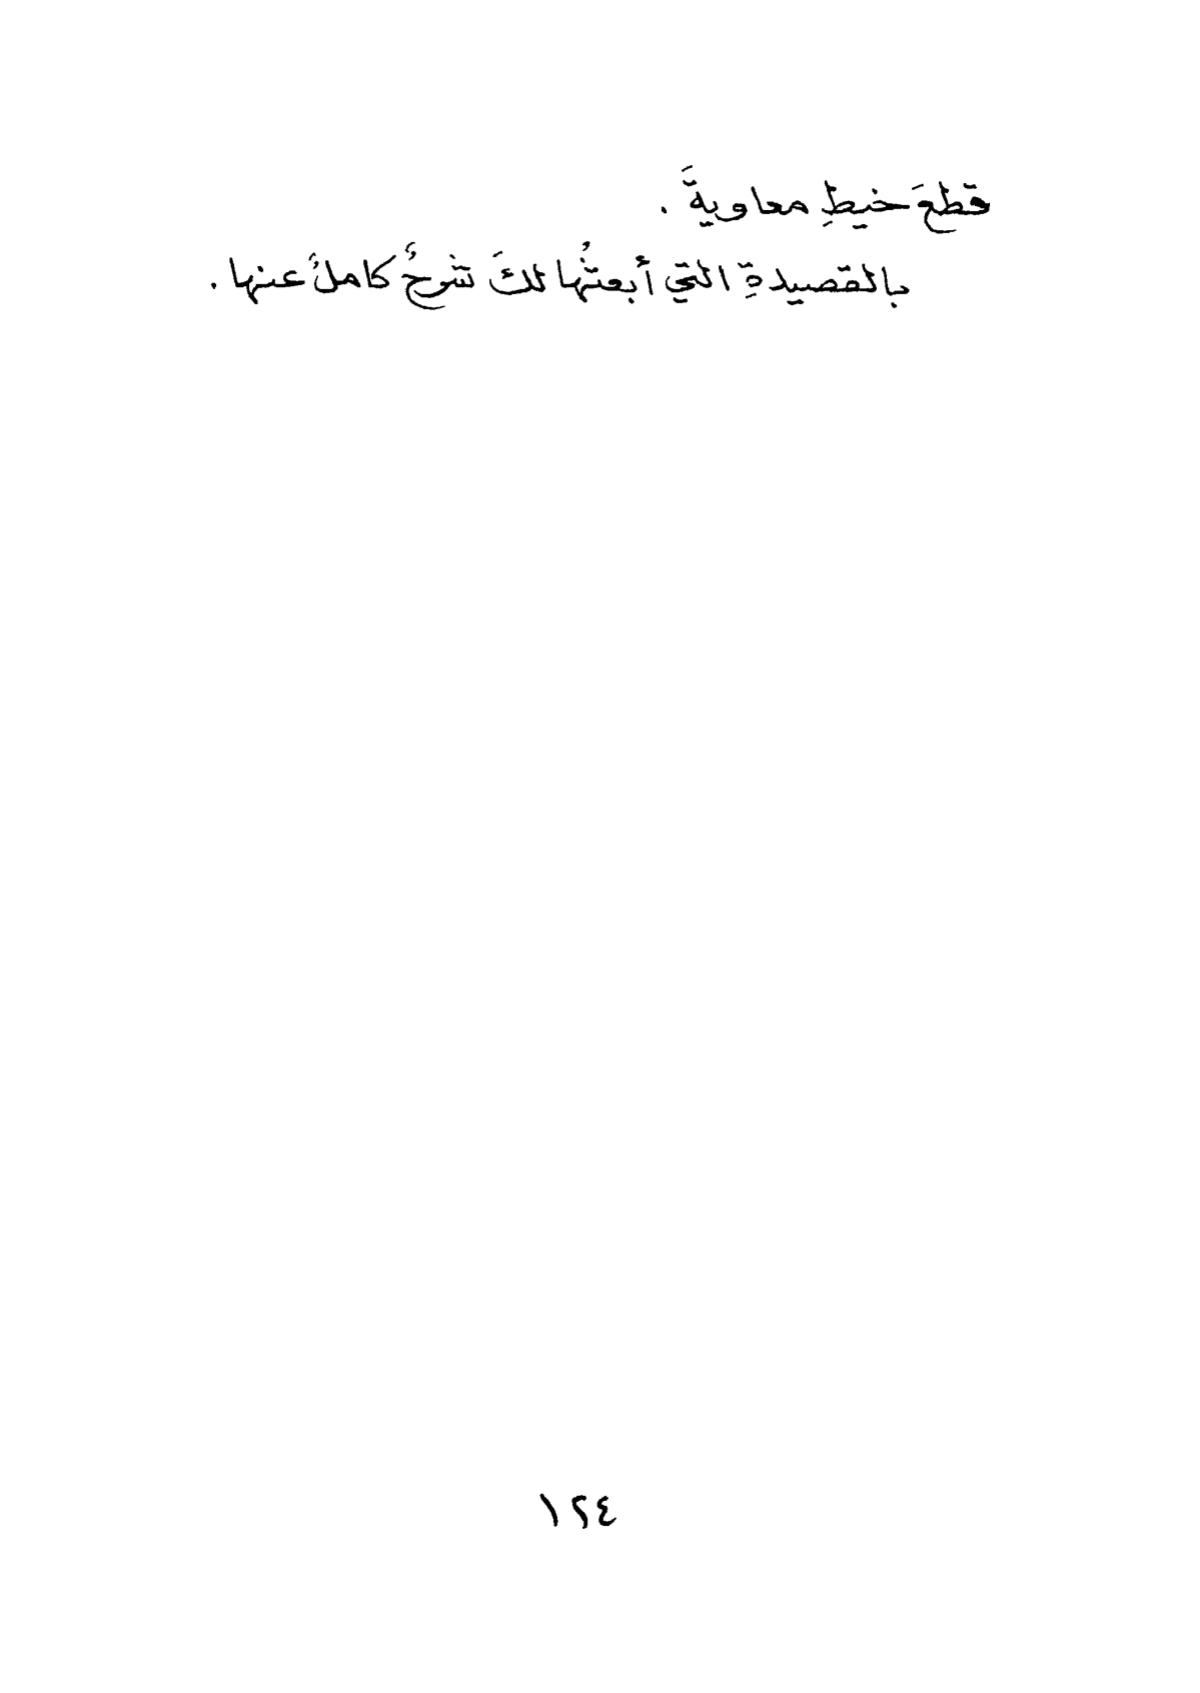 قطعَ خيطِ معاويةَ .
بالقصيدةِ التي أبعثُها لكَ شرحٌ كاملٌ عنها .
١٢٤